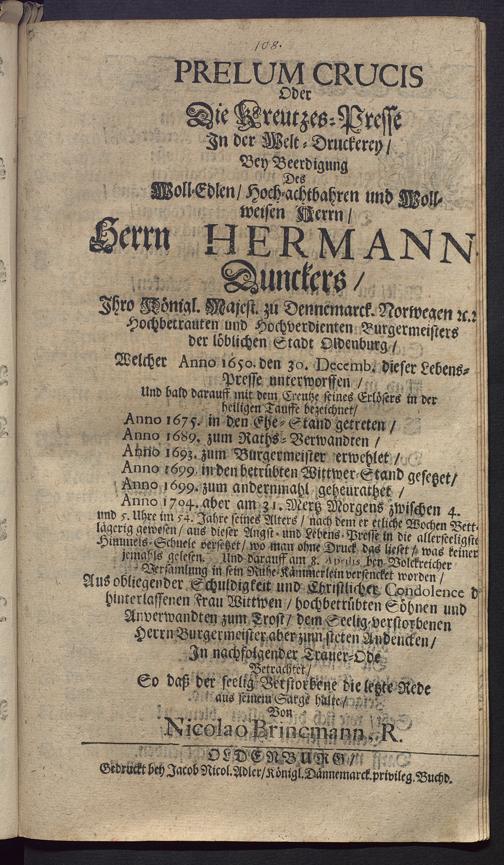 108.
PRELUM CRUCIS
Oder
Die Kreutzes-Presse
In der Welt-Druckerey/
Bey Beerdigung
Des
Woll-Edlen/ Hoch-achtbahren und Woll-
weisen Herrn/
Herrn HERMANN
Dunckers/
Ihro Königl. Majest. zu Dennemarck. Norwegen ꝛc.ꝛ
Hochbetrauten und Hochverdienten Burgermeisters
der löblichen Stadt Oldenburg/
Welcher Anno 1650. den 30. Decemb. dieser Lebens-
Presse unterworffen/
Und bald darauff mit dem Creutze seines Erlösers in der
heiligen Tauffe bezeichnet/
Anno 1675. in den Ehe-Stand getreten/
Anno 1689. zum Raths-Verwandten/
Anno 1693. zum Burgermeister erwehlet/
Anno 1699. in den betrübten Wittwer-Stand gesetzet/
Anno 1699. zum andernmahl geheurathet/
Anno 1704. aber am 31. Mertz Morgens zwischen 4.
und 5. Uhre im 54. Jahre seines Alters/ nach dem er etliche Wochen Bett-
lägerig gewesen/ aus dieser Angst- und Lebens-Presse in die allerseeligste
Himmels-Schuele versetzet/ wo man ohne Druck das lieset/ was keiner
jemahls gelesen. Und darauff am 8. Aprilis bey Volckreicher
Versamlung in sein Ruhe-Kämmerlein versencket worden/
Aus obliegender Schuldigkeit und Christlicher Condolence d
hinterlassenen Frau Wittwen/ hochbetrübten Söhnen und
Anverwandten zum Trost/ dem Seelig-verstorbenen
Herrn Burgermeister aber zum steten Andencken/
In nachfolgender Trauer-Ode
Betrachtet/
So daß der seelig Verstorbene die letzte Rede
aus seinem Sarge halte/
Von
Nicolao Brincmann, R.
OLDENBURG/
Gedruckt bey Jacob Nicol. Adler/ Königl. Dännemarck. privileg. Buchd.